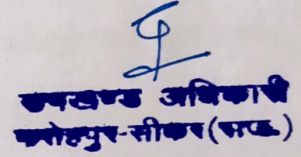 उपखण्ड अधिकारी
फतेहपुर-सीकर (राज.)